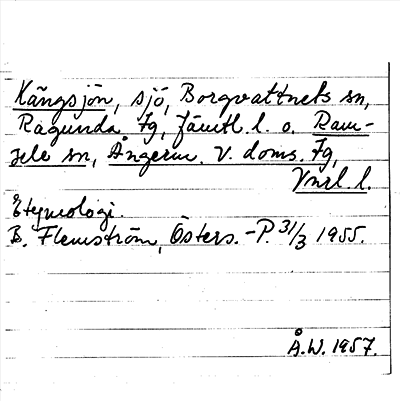 Kängsjön, sjö, Borgvattnets sn,
Ragunda Tg, Jämtl. l. o. Ram-
sele sn, Ångerm. V. doms. Tg,
Vnrl. l.
Etymologi.
B. Flemström, Östers.-P. 31/3 1955.
Å.W. 1957.